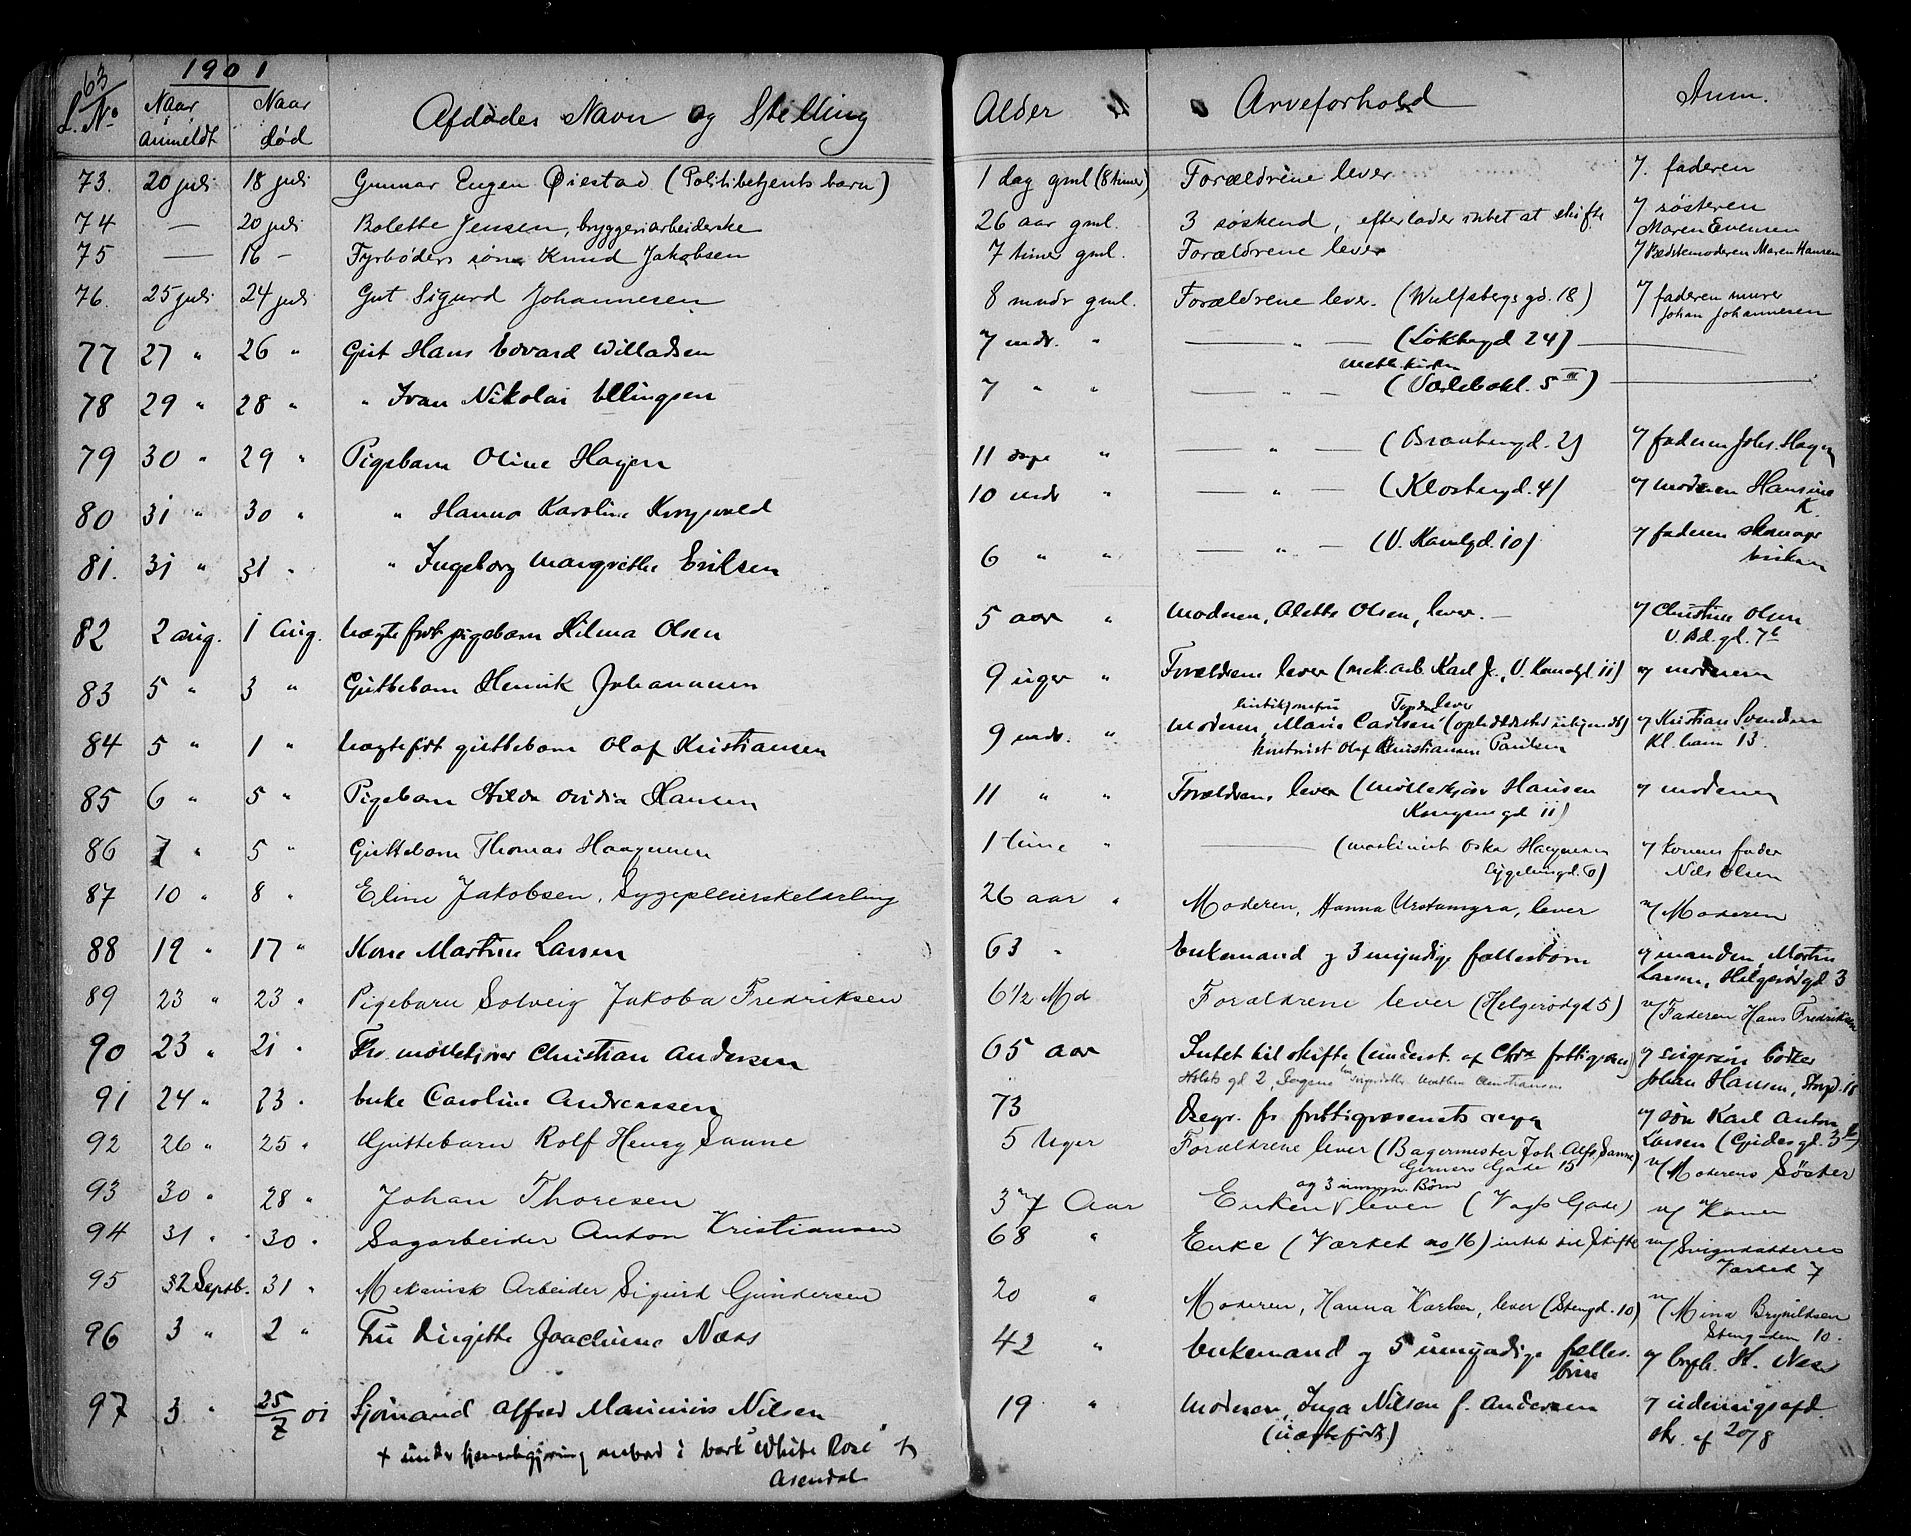 63
1901
L. No Naar anmeldt Naar død Afdødes Navn og Stilling Alder Arveforhold Anm.
73. 20 juli 18 juli Gunnar Eugen Øiestad (Politibetjents barn) 1 dag gml (8 timer) Forældrene lever 7. faderen
74 — 20 juli Bolette Jensen, bryggeriarbeiderske 26 aar gml. 3 søskend, efterlader intet at skifte 7 søsteren
Maren Evensen
75 — 16 — Fyrbøders søn Knud Jakobsen 7 timer gml. Forældrene lever 7 Maren Hansen
76. 25 juli 24 juli Gut Sigurd Johannesen 8 mndr gml. Forældrene lever. (Wulfsbergs gd. 18) 7 faderen murer
Johan Johannesen
77 27 " 26 " Gut Hans Edvard Willadsen 7 mdr. " — " — (Løkkegd 24) —
78 29 " 28 " " Ivan Nikolai Ellingsen 7 " " — " — (Varlebakl. 5 III) —
79 30 " 29 " Pigebarn Oline Hagen 11 dage " — " — (Brautengd. 2) 7 faderen Johs. Hagen
80 31 " 30 " " Hanna Karoline 10 mdr " — " — (Klostergd. 4) 7 moderen Hansine
K.
81. 31 " 31 " " Ingeborg Margrethe Eriksen 6 " " — " — (V. Kanalgd. 10) 7 faderen skomager
Eriksen
82 2 aug. 1 Aug. Uægte født pigebarn Hilma Olsen 5 aar " Moderen, Alette Olsen, lever. — 7 Christine Olsen
V. Bd. gd. 7b
83 5 " 3 " Guttebarn Henrik Johannesen 9 uger " Forældrene lever (mek. arb. Karl J., V. Kanalgd. 11) 7 moderen
84 5 " 1 " Uægte født guttebarn Olaf Kristiansen 9 mdr. " Moderen, Marie Carlsen (opholdssted ubekjendt) 7 Kristian Svendsen
Olaf Christiansen Paulsen Kl. 13.
85 6 " 5 " Pigebarn Hilda Ovidia Hansen 11 " " Forældrene lever (Møllekjører Hansen 7 moderen
Kongensgd 11)
86 7 " 5 " Guttebarn Thomas Haagensen 1 time " — (maskinist Oskar Haagensen 7 konens fader
6) Nils Olsen
87 10 " 8 " Eline Jakobsen, Sygepleierskelærling 26 aar " Moderen, Hanna Urstamyra, lever v/ Moderen
88 19 " 17 " Kone Martine Larsen 63 " Enkemand og 3 myndige fællesbørn 7 manden, Morten
Larsen, Helgerødgd 3
89 23 " 23 " Pigebarn Solveig Jakoba Fredriksen 6½ Md Forældrene lever (Helgerødgd 5) v/ Faderen Hans Fredriksen
90 23 " 21 " Fhv. møllekjører Christian Andersen 65 aar Intet til skifte (underst. af Chra fattigvæsen) 7 svigersøn bødker
Holsts gd 2, Christiansen Johan Hansen, Storgd. 18
91 24 " 23 " Enke Caroline Andreassen 73 Begr. for fattigvæsenets regn 7 søn Karl Anton
Larsen (Gjedesgd. 3b)
92 26 " 25 " Guttebarn Rolf Henry Sanne 5 Uger Forældrene lever (Bagermester Joh. Alfr. Sanne v/ Moderens Søster
Gerners Gade 15)
93 30 " 28 " Johan Thoresen 37 Aar Enken og 3 umyn. Børn lever (Vogts Gade) v/ Konen
94 31 " 30 " Sagarbeider Anton Kristiansen 68 " Enke (Værket no 16) intet til skifte v/ Svigerdatteren
Værket 7
95 2 Septb. 31 " Mekanisk Arbeider Sigurd Gundersen 20 " Moderen, Hanna Karken, lever (Stengd. 10) v/ Mina Brynildsen
Stengaden 10.
96 3 " 2 " Fru Birgitte Joachime Næss 42 " Enkemand og 5 umyndige fælles- 7 H. Næss
børn
97 3 " 25/7 01 Sjømand Alfred Marinius Nilsen 19 " Moderen, Inga Nilsen f. Andersen 7 udenrigsafd.
(uægte født) skr. af 20/8
+ under hjemseilgjøring ombord i bark "White Rose" af
Arendal